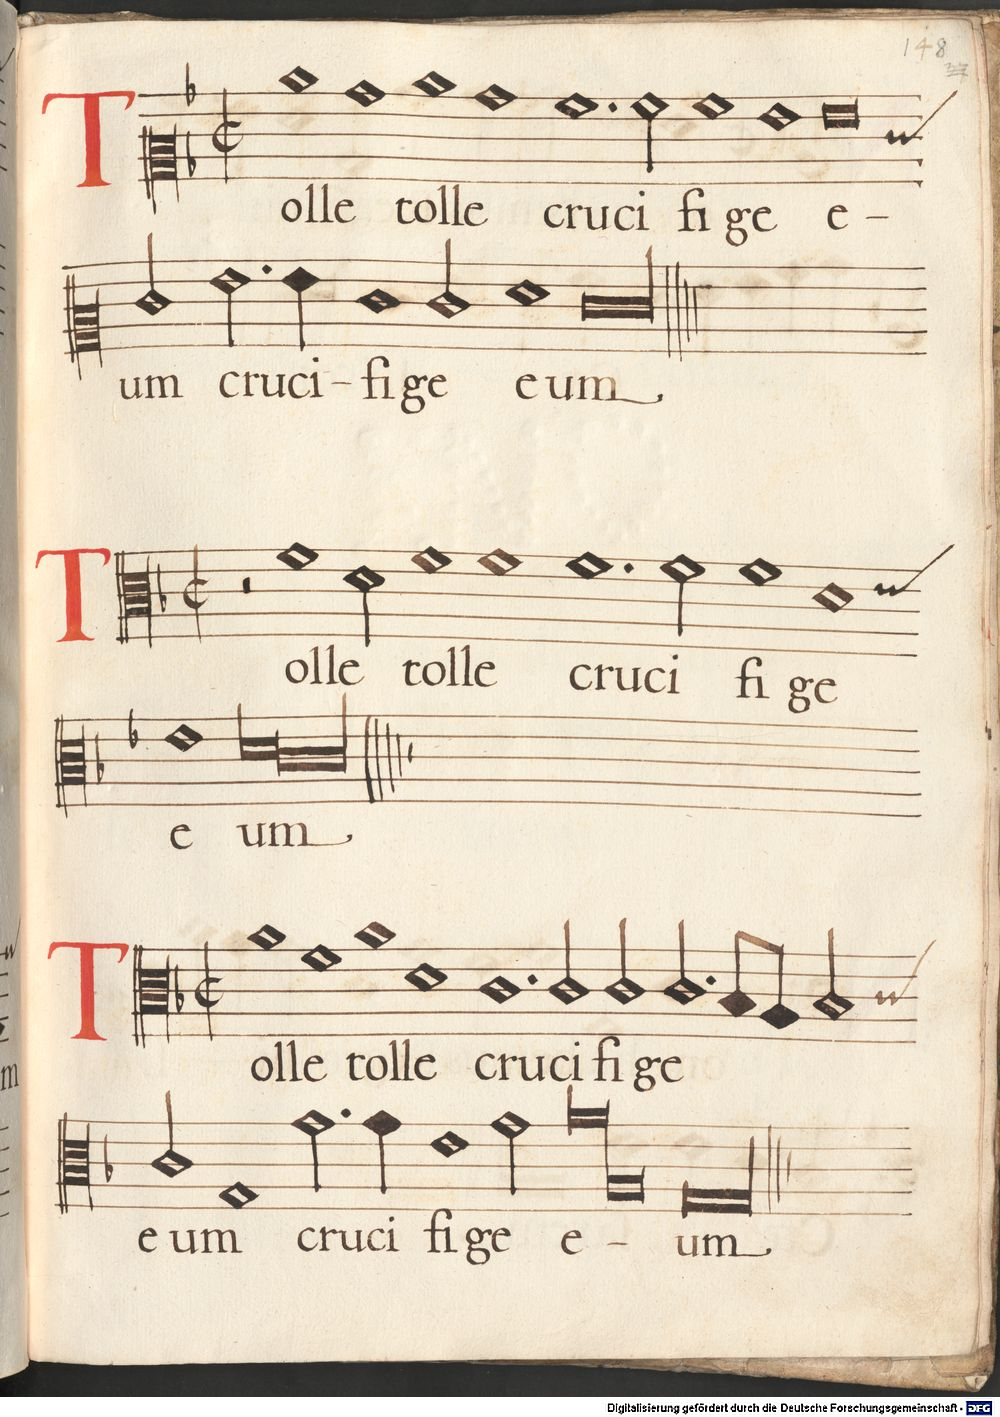 148
Tolle tolle cruci fi ge e-
um cruci-fige eum
Tolle tolle cruci fi ge
e um
Tolle tolle crucifige
eum cruci fige e - um
Digitalisierung gefördert durch die Deutsche Forschungsgemeinschaft - DFG